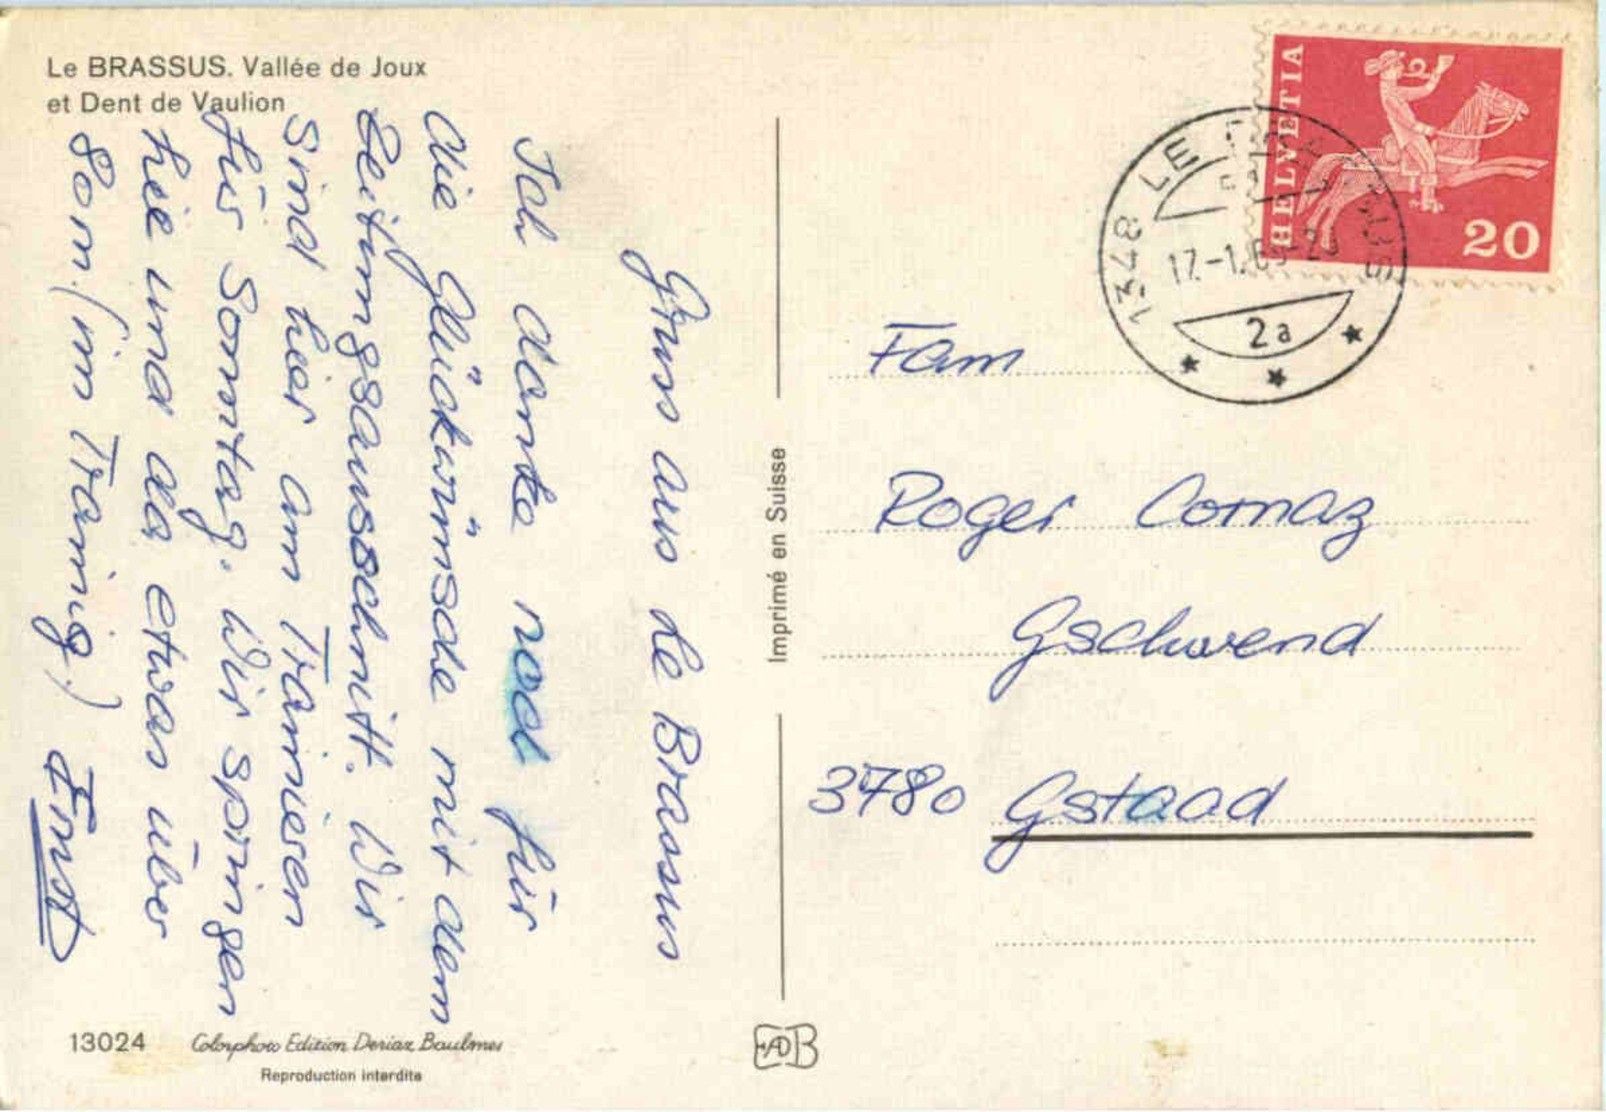 Le BRASSUS. Vallée de Joux
et Dent de Vaulion
Gruss aus Le Brassus
Ich danke noch für
die Glückwünsche mit dem
Zeitungsausschnitt. Wir
sind hier am Trainieren
für Sonntag. Wir springen
hie und da etwas über
80m. (im Training.) Ernst
13024
Colorphoto Edition Deriaz Baulmes
Reproduction interdite
Imprimé en Suisse
EADB
HELVETIA
20
1348 LE BRASSUS
17.-1.69-20
2a
Fam
Roger Comaz
Gschwend
3780 Gstaad